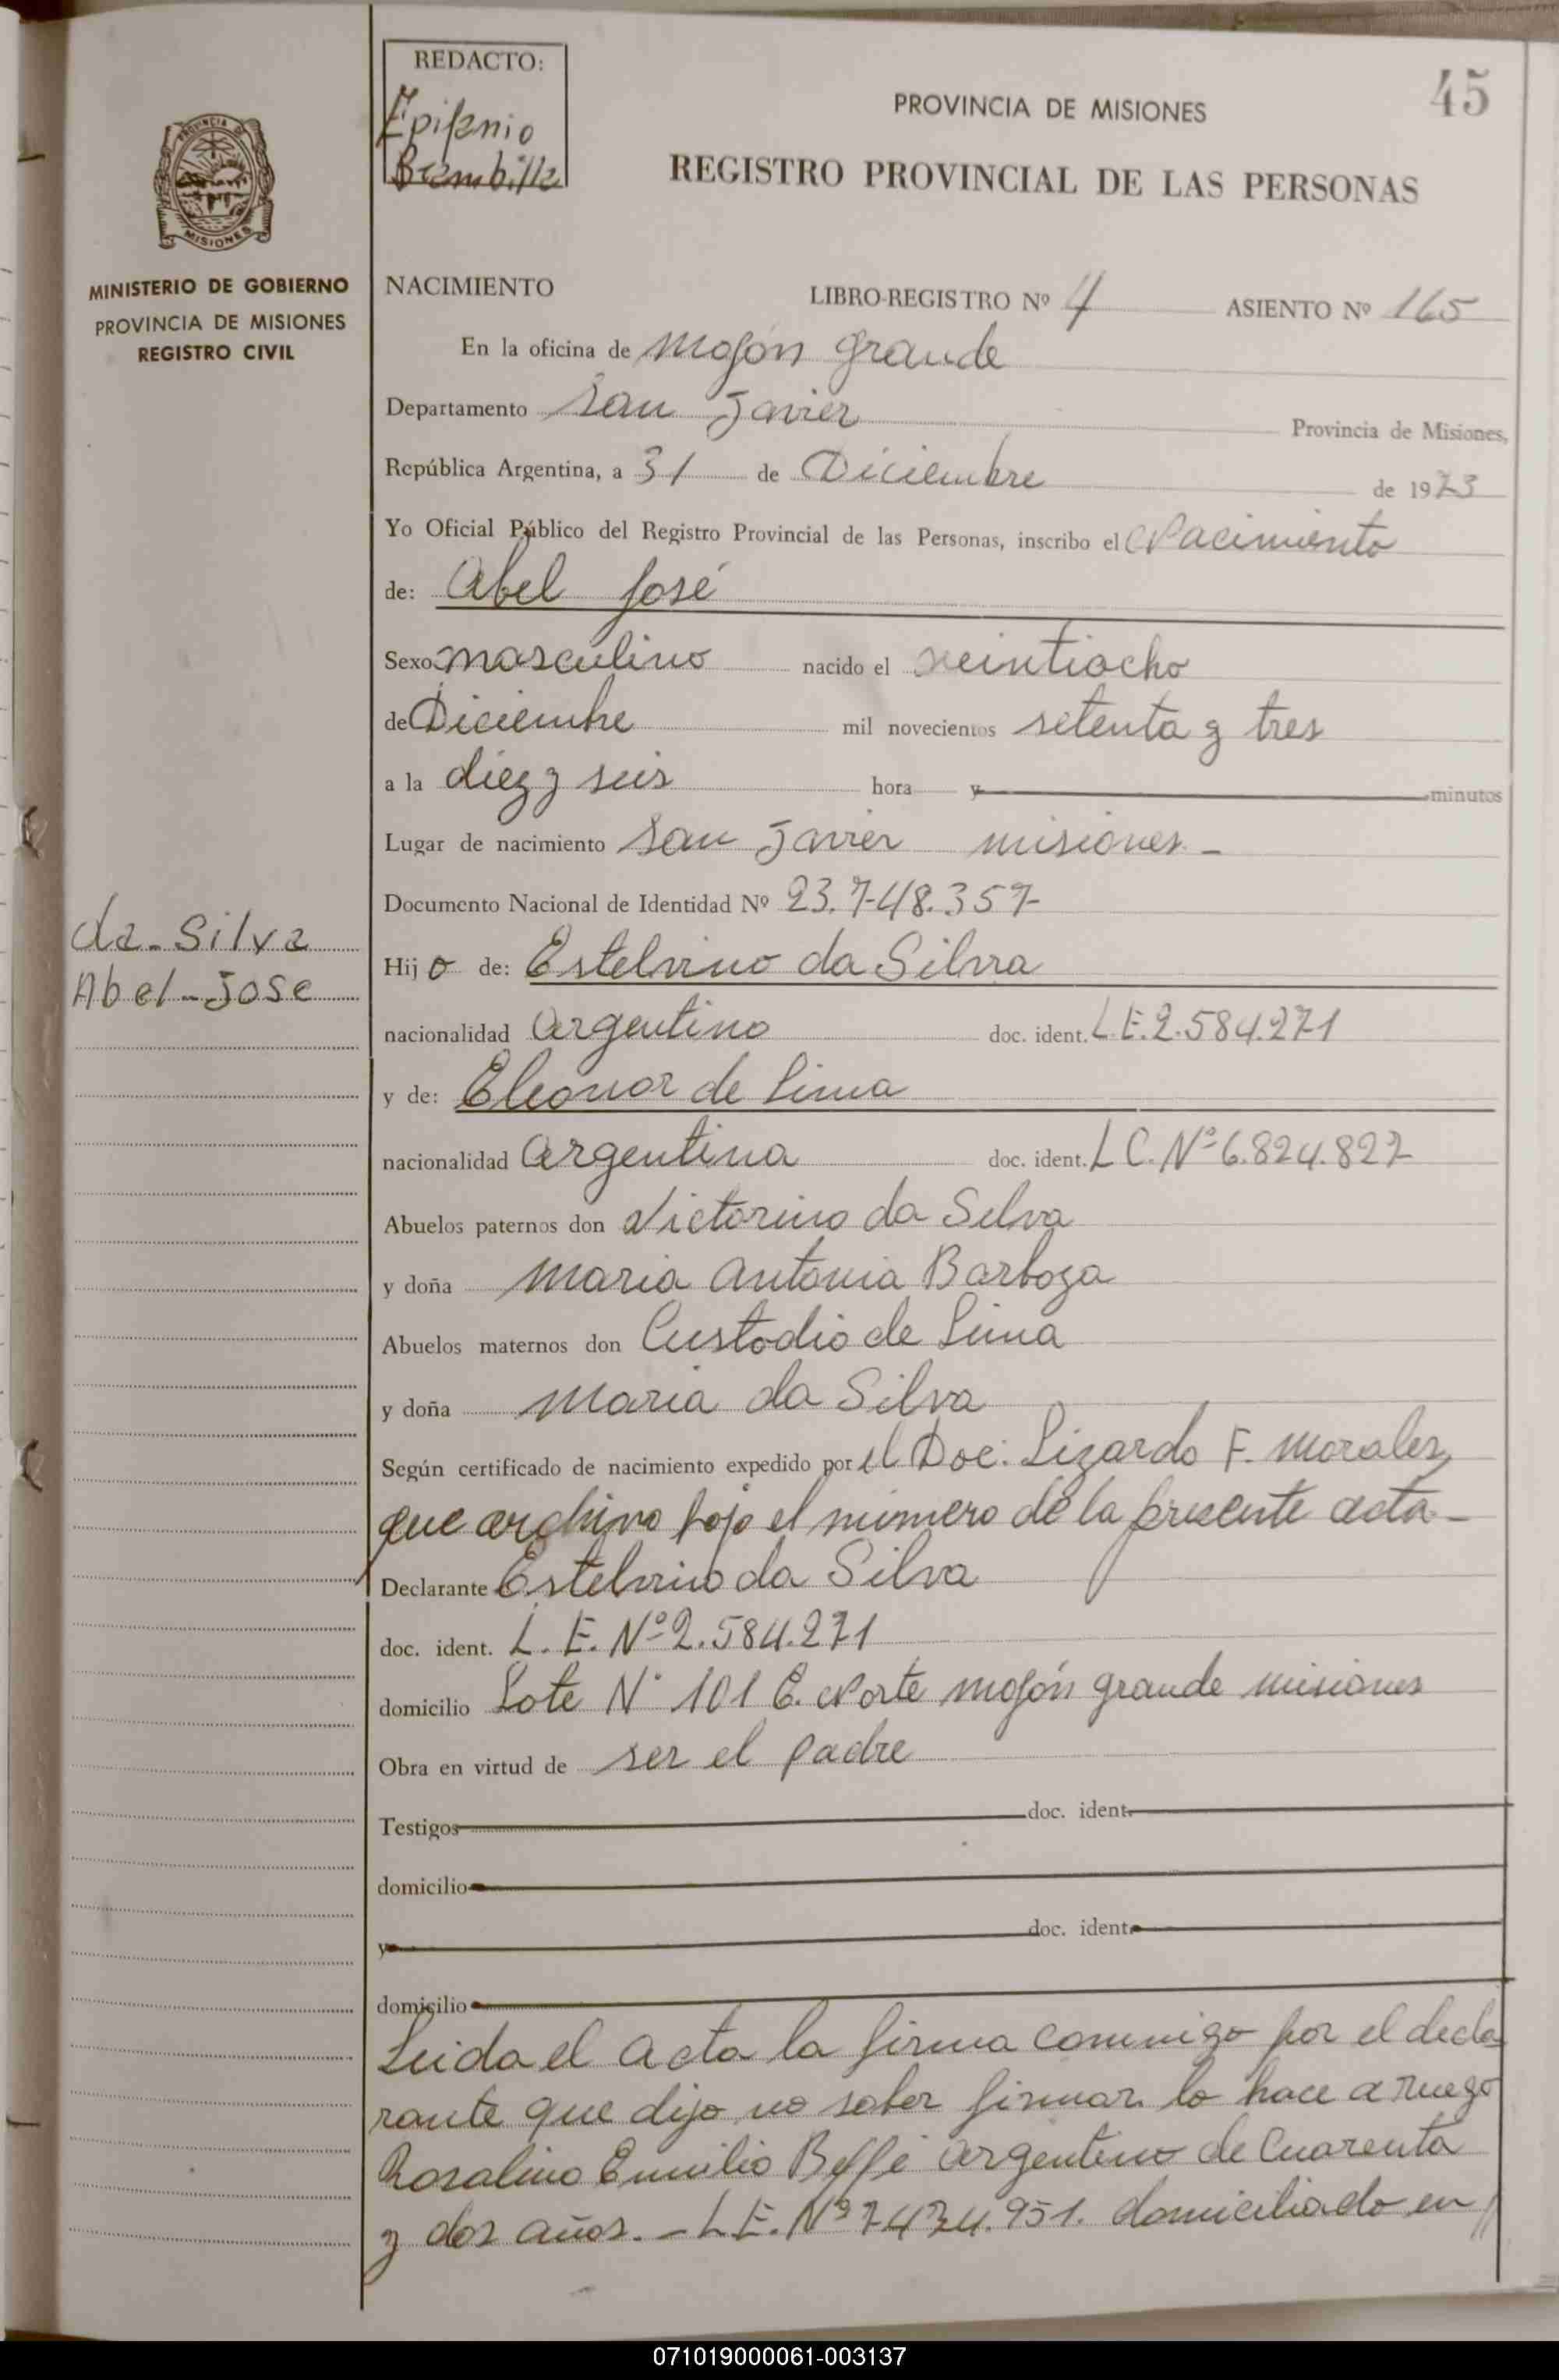 REDACTO:
Epifanio
Brambilla
45
PROVINCIA DE MISIONES
REGISTRO PROVINCIAL DE LAS PERSONAS
PROVINCIA D
MISIONES
MINISTERIO DE GOBIERNO
PROVINCIA DE MISIONES
REGISTRO CIVIL
da Silva
Abel José
NACIMIENTO LIBRO-REGISTRO Nº 4 ASIENTO Nº 165
En la oficina de Mojón grande
Departamento San Javier Provincia de Misiones,
República Argentina, a 31 de Diciembre de 1973
Yo Oficial Público del Registro Provincial de las Personas, inscribo el Nacimiento
de: Abel José
Sexo masculino nacido el veintiocho
de Diciembre mil novecientos setenta y tres
a la diez y seis hora y minutos
Lugar de nacimiento San Javier misiones -
Documento Nacional de Identidad Nº 23.748.357
Hijo de: Estelvino da Silva
nacionalidad Argentino doc. ident. L.E. 2.584.271
y de: Eleonor de Lima
nacionalidad Argentina doc. ident. L C. Nº 6.824.827
Abuelos paternos don Victorino da Silva
y doña Maria Antonia Barboza
Abuelos maternos don Custodio de Lima
y doña Maria da Silva
Según certificado de nacimiento expedido por el Doc: Lizardo F. Morales,
que archivo bajo el número de la presente acta -
Declarante Estelvino da Silva
doc. ident. L. E. Nº 2.584.271
domicilio Lote Nº 101 E. Norte mojón grande misiones
Obra en virtud de ser el padre
Testigos doc. ident.
domicilio
y doc. ident.
domicilio
Leida el Acta la firma conmigo por el decla
rante que dijo no saber firmar lo hace a ruego
Rosalino Emilio Argentino de Cuarenta
y dos años. - L E. Nº 7474.951. domiciliado en //
071019000061-003137